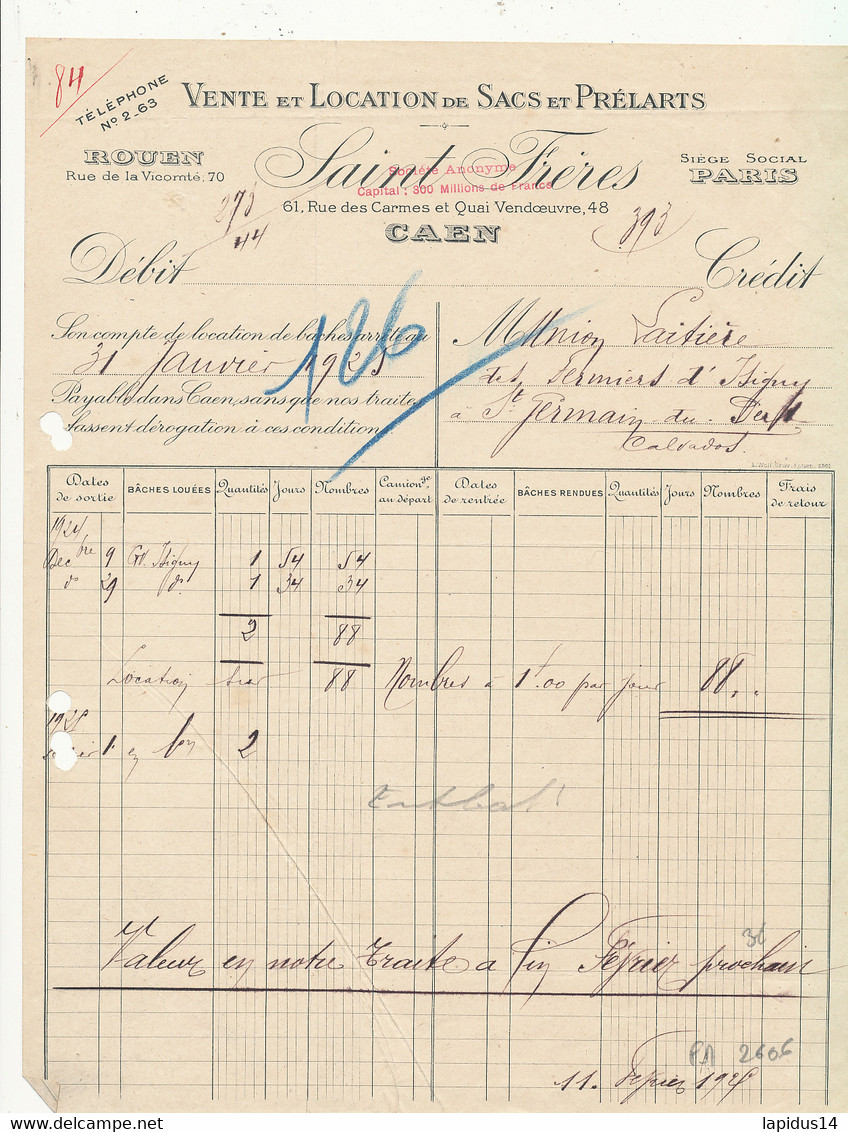 84
TÉLÉPHONE
No 2-63
VENTE ET LOCATION DE SACS ET PRÉLARTS
ROUEN
Rue de la Vicomté, 70
Saint Frères
Société Anonyme
Capital : 300 Millions de Francs
SIÈGE SOCIAL
PARIS
61, Rue des Carmes et Quai Vendœuvre, 48
CAEN
273
44
393
Débit
Crédit
126
Son compte de location de bâches arrêté au
31 Janvier 1925
Payable dans Caen, sans que nos traites
fassent dérogation à ces conditions
M Union Laitière
des Fermiers d'Isigny
à St Germain du Pert
Calvados
Dates de sortie
BÂCHES LOUÉES
Quantités
Jours
Nombres
Camionge au départ
Dates de rentrée
BÂCHES RENDUES
Quantités
Jours
Nombres
Frais de retour
1924
Decbre 9 Isigny 1 54 54
do 29 do 1 34 34
2 88
Location 88 Nombres à 1f.00 par jour 88 " "
1925
1 en 2
Valeur en notre traite a fin Février prochain
PA 2606
11 Février 1925
lapidus14